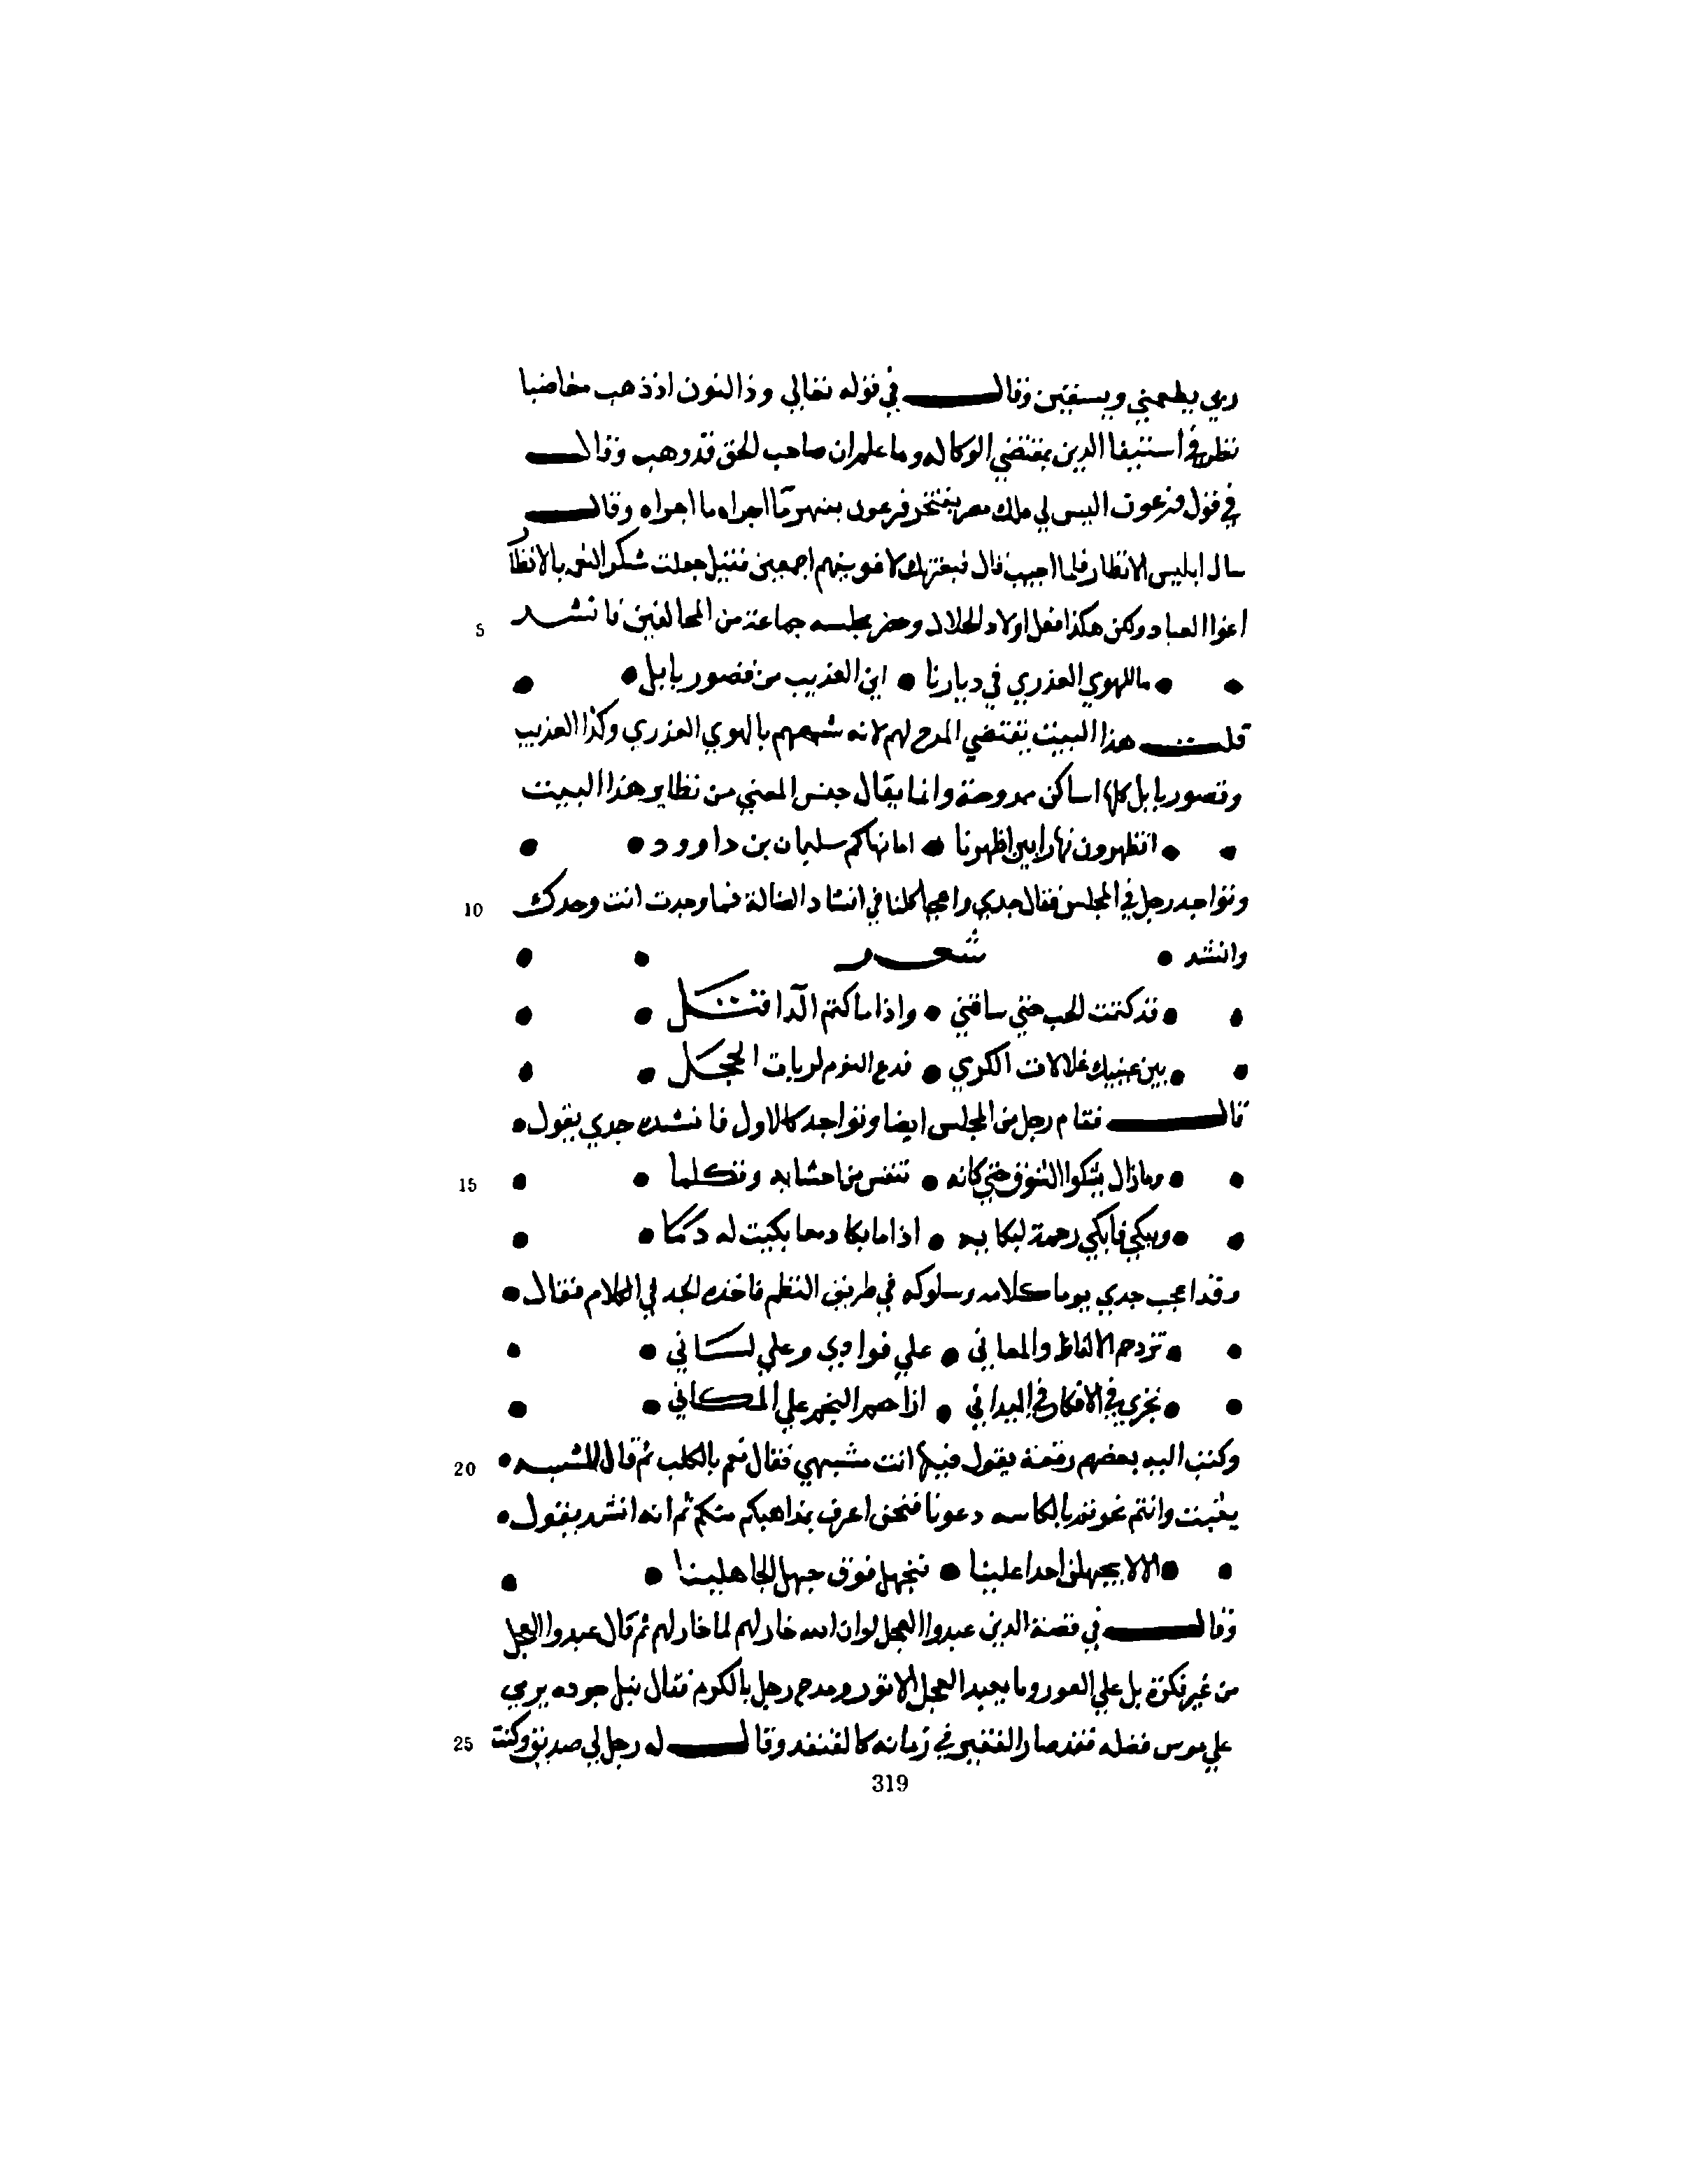 ربي يطعمني ويسقين وقال في قوله تعالي وذا النون اذ ذهب مغاضبا
نظر في استيفا الدين بمقتضي الوكاله وما علم ان صاحب الحق قد وهب وقال
في قول فرعون اليس لي ملك مصر يفتخر فرعون بنهر ما اجراه ما اجراه وقال
سال ابليس الانظار فلما اجيب قال فبعزتك لاغوينهم اجمعين فقيل جعلت شكر النعم بالانظار
اغوا العباد ولكن هكذا فعل اولاد الحلال وحضر مجلسه جماعة من المخالفين فانشد
5
• • ما للهوي العذري في ديارنا • اين العذيب من قصور بابل • •
قلت هذا البيت يقتضي المدح لهم لانه شبههم بالهوي العذري وكذا العذيب
وقصور بابل كلها اماكن ممدوحة وانما يقال جنس المعني من نظاير هذا البيت
• • اتظهرون نهارا بين اظهرنا • اما نهاكم سليمان بن داوود • •
وتواجد رجل في المجلس فقال جدي واعجبا كلنا في انشاد الضالة فما وجدت انت وحدك
10
وانشد • شعر • •
• • قد كتمت الحب حتي ساقني • واذا ما كتم الدا قتل • •
• • بين عينيك علالات الكري • فدع النوم لربات الحجل • •
قال فقام رجل من المجلس ايضا وتواجد كالاول فانشده جدي يقول •
• • وما زال يشكوا الشوق حتي كانه • تنفس من احشايه وتكلما • •
15
• • ويبكي فابكي رحمة لبكايه • اذا ما بكا دمعا بكيت له دما • •
وقد اعجب جدي يوما كلامه وسلوكه في طريق النظم فاخذه الجد في الكلام فقال •
• • تزدحم الالفاظ والمعاني • علي فوادي وعلي لساني • •
• • تجري بي الافكار في الميدان • اذا حصر النجم علي المكاني • •
وكتب اليه بعضهم رقعة يقول فيها انت مشبهي فقال نعم بالكلب ثم قال للشبيه •
20
يقبت وانتم نحو يا دعونا فنحن اعرف بمذاهبكم منكم ثم انه انشد يقول •
• • الا لا يجهلن احدا علينا • فنجهل فوق جهل الجاهلينا • •
وقال في قصة الذين عبدوا العجل لو ان الله خار لهم لما خار لهم ثم قال عبدوا العجل
من غير فكرة بل علي العور وما يعبد العجل الا ثور ومدح رجل بالكرم فقال نيل جوده يربي
علي فضله فقد صار الفقير في زمانه كالقنفد وقال له رجل لي صديق وكنت
25
319